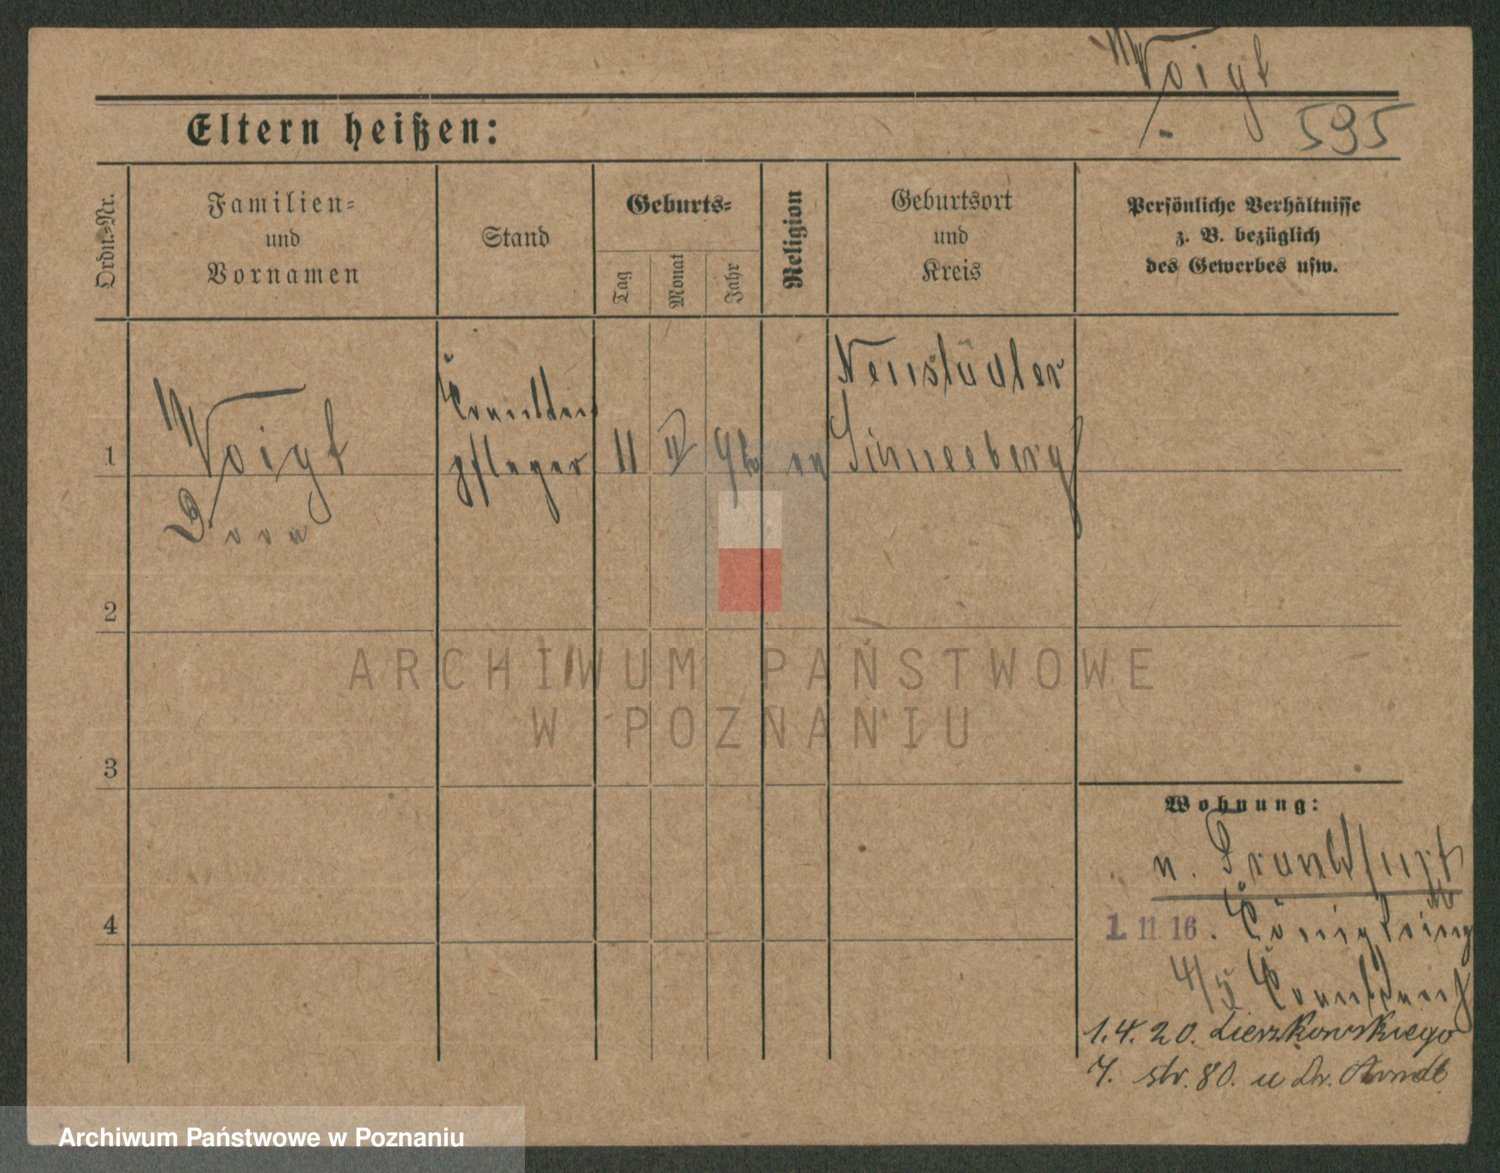 Voigt
595
Eltern heißen:
Ordn.-Nr.
Familien-
und
Vornamen
Stand
Geburts-
Tag
Monat
Jahr
Religion
Geburtsort
und
Kreis
Persönliche Verhältnisse
z. B. bezüglich
des Gewerbes usw.
1
Voigt
Dora
Kranken
pfleger
11
ev
Neustädtel
Schneeberg
2
3
4
ARCHIWUM PAŃSTWOWE
W POZNANIU
Wohnung:
n. Frankfurt
1 11 16. Königsring
4/5 Krankenh
1.4.20. Cieszkowskiego
7. str. 80. u Dr. Arndt
Archiwum Państwowe w Poznaniu